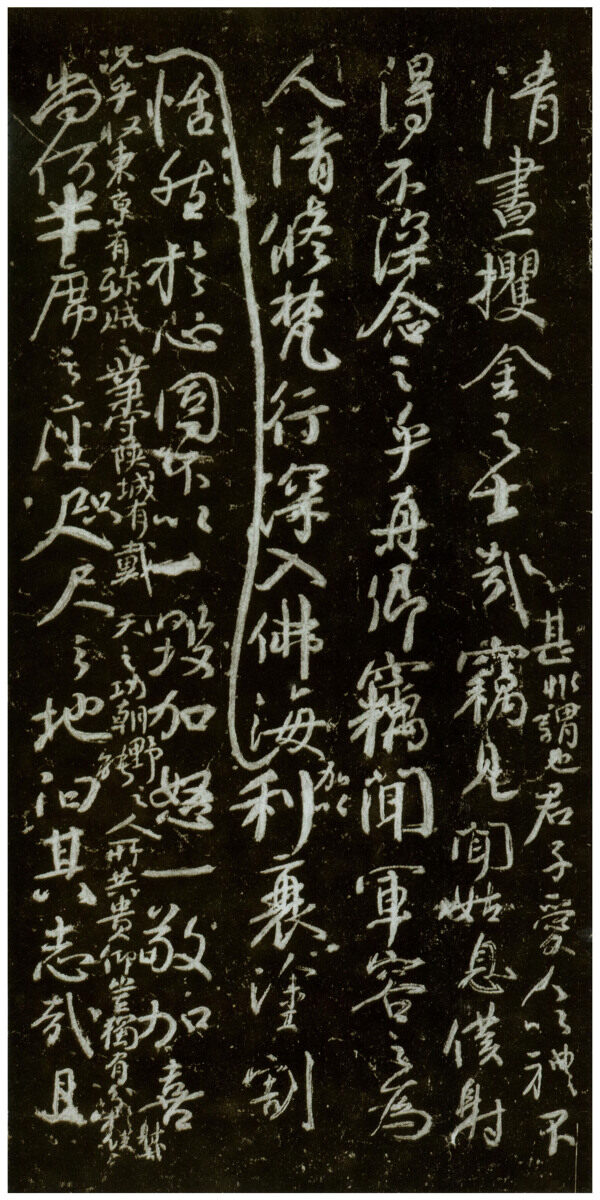 甚非謂也君子愛人以禮不
清晝攫金之士哉竊見聞姑息僕射
得不深念之乎真卿竊聞軍容之為
人清修梵行深入佛海加以利衰塗割
恬然於心固不以一毀加怒一敬加喜
況乎收東京有殄賊之業守陝城有戴天之功朝野之人所共貴仰豈獨有分於僕射哉
尚何半席之座咫尺之地汨其志哉且